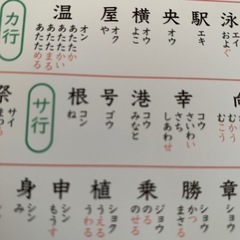 泳 エイ およぐ
駅 エキ
央 オウ
横 オウ よこ
屋 オク や
温 オン あたたか あたたかい あたたまる あたためる
カ行
向 むかう むこう
幸 コウ さいわい さち しあわせ
港 コウ みなと
号 ゴウ
根 コン ね
サ行
祭 サイ
章 ショウ
勝 ショウ かつ まさる
乗 ジョウ のる のせる
植 ショク うえる うわる
申 シン もうす
身 シン み